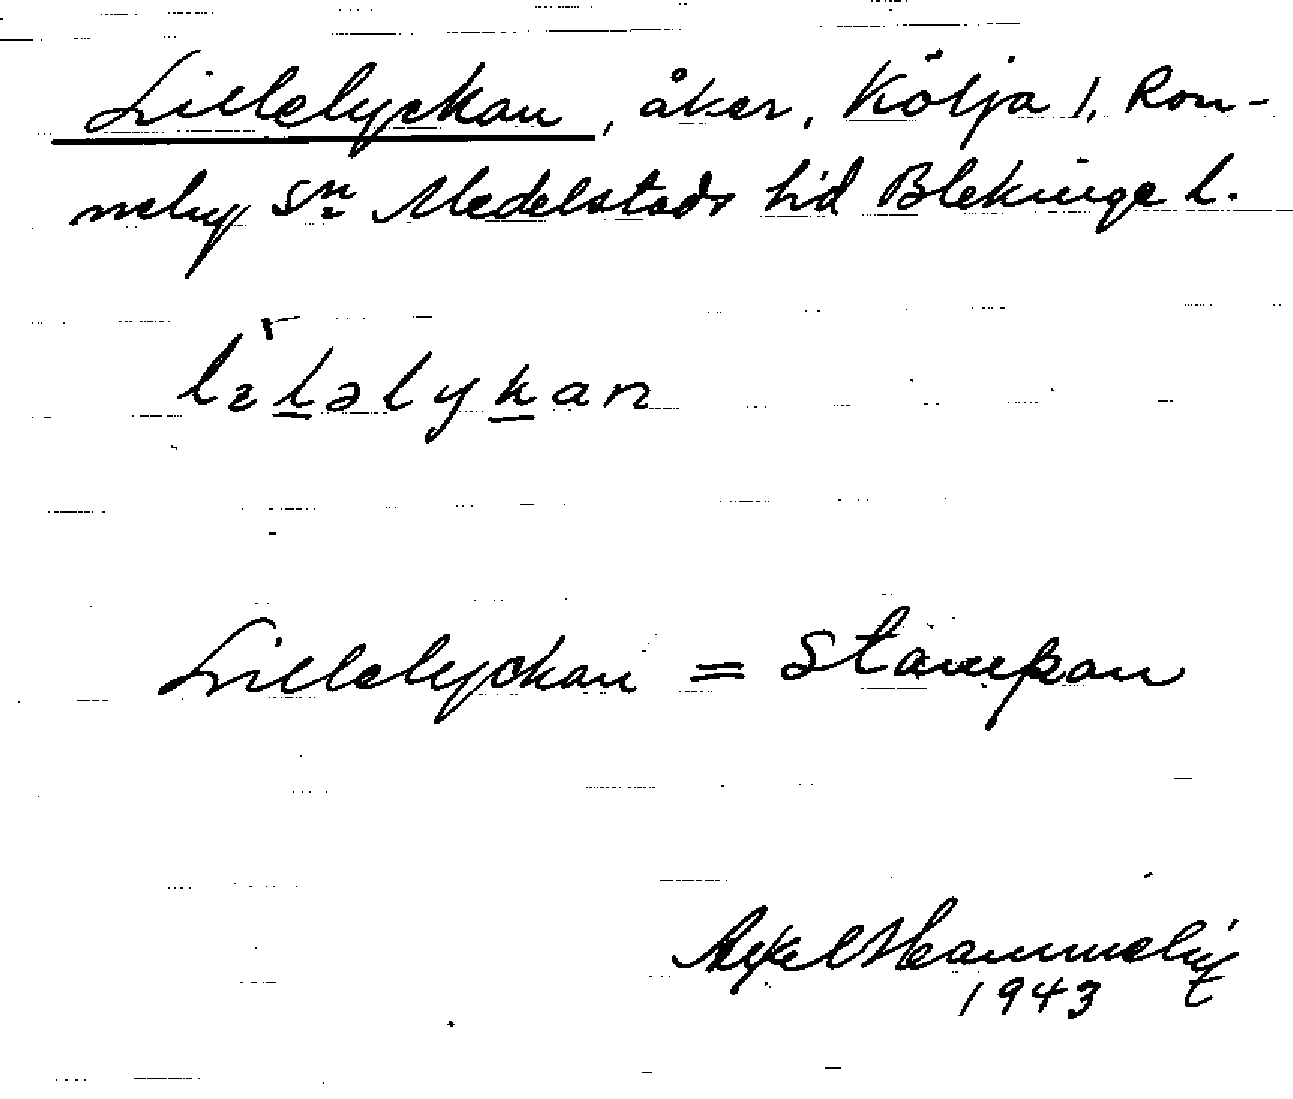 Lillelyckan, åker, Kölja 1, Ron-
neby sn Medelstads hd Blekinge l.
lɪləlykan
Lillelyckan = Stampan
Axel
1943